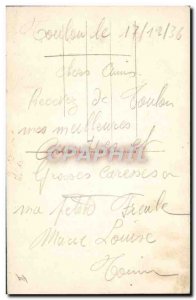 Toulon le 17/12/36
Chers Amis
Recevez de Toulon
mes meilleures
Grosses caresses a
ma petite
Marie Louise